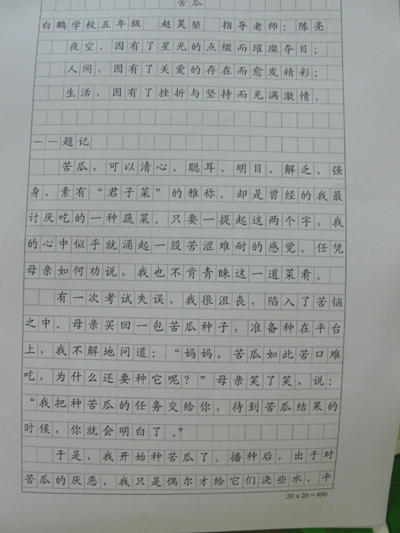 苦瓜
白鹤学校五年级 赵昊堃 指导老师：陈亮
夜空，因有了星光的点缀而璀璨夺目；
人间，因有了关爱的存在而愈发精彩；
生活，因有了挫折与坚持而充满激情。
——题记
苦瓜，可以清心、聪耳、明目、解乏、强
身，素有“君子菜”的雅称。却是曾经的我最
讨厌吃的一种蔬菜。只要一提起这两个字，我
的心中似乎就涌起一股苦涩难耐的感觉。任凭
母亲如何劝说，我也不肯青睐这一道菜肴。
有一次考试失误，我很沮丧，陷入了苦恼
之中。母亲买回一包苦瓜种子，准备种在平台
上，我不解地问道：“妈妈，苦瓜如此苦口难
吃，为什么还要种它呢？”母亲笑了笑，说：
“我把种苦瓜的任务交给你，待到苦瓜结果的
时候，你就会明白了。”
于是，我开始种苦瓜了。播种后，出于对
苦瓜的厌恶，我只是偶尔才给它们浇些水，平
20 x 20 = 400